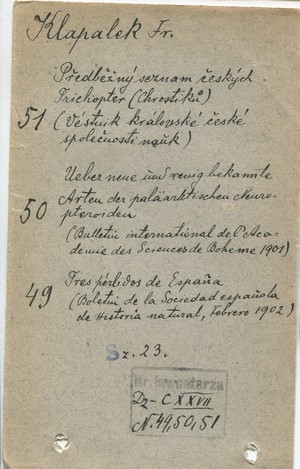 Klapalek Fr.
Předběžný seznam českých
Trichopter (Chrostíků)
51 (Věstnik královské české
společnosti nauk)
Ueber neue und wenig bekannte
50 Arten der paläarktischen Neuro-
pteroiden
(Bulletin international de l'Aca-
démie des Sciences de Boheme 1901)
49 Tres pérlidos de España
(Boletin de la Sociedad española
de Historia natural, Febrero 1902)
Sz. 23.
Nr. inwentarza
Dz-C XXVII
N. 49, 50, 51